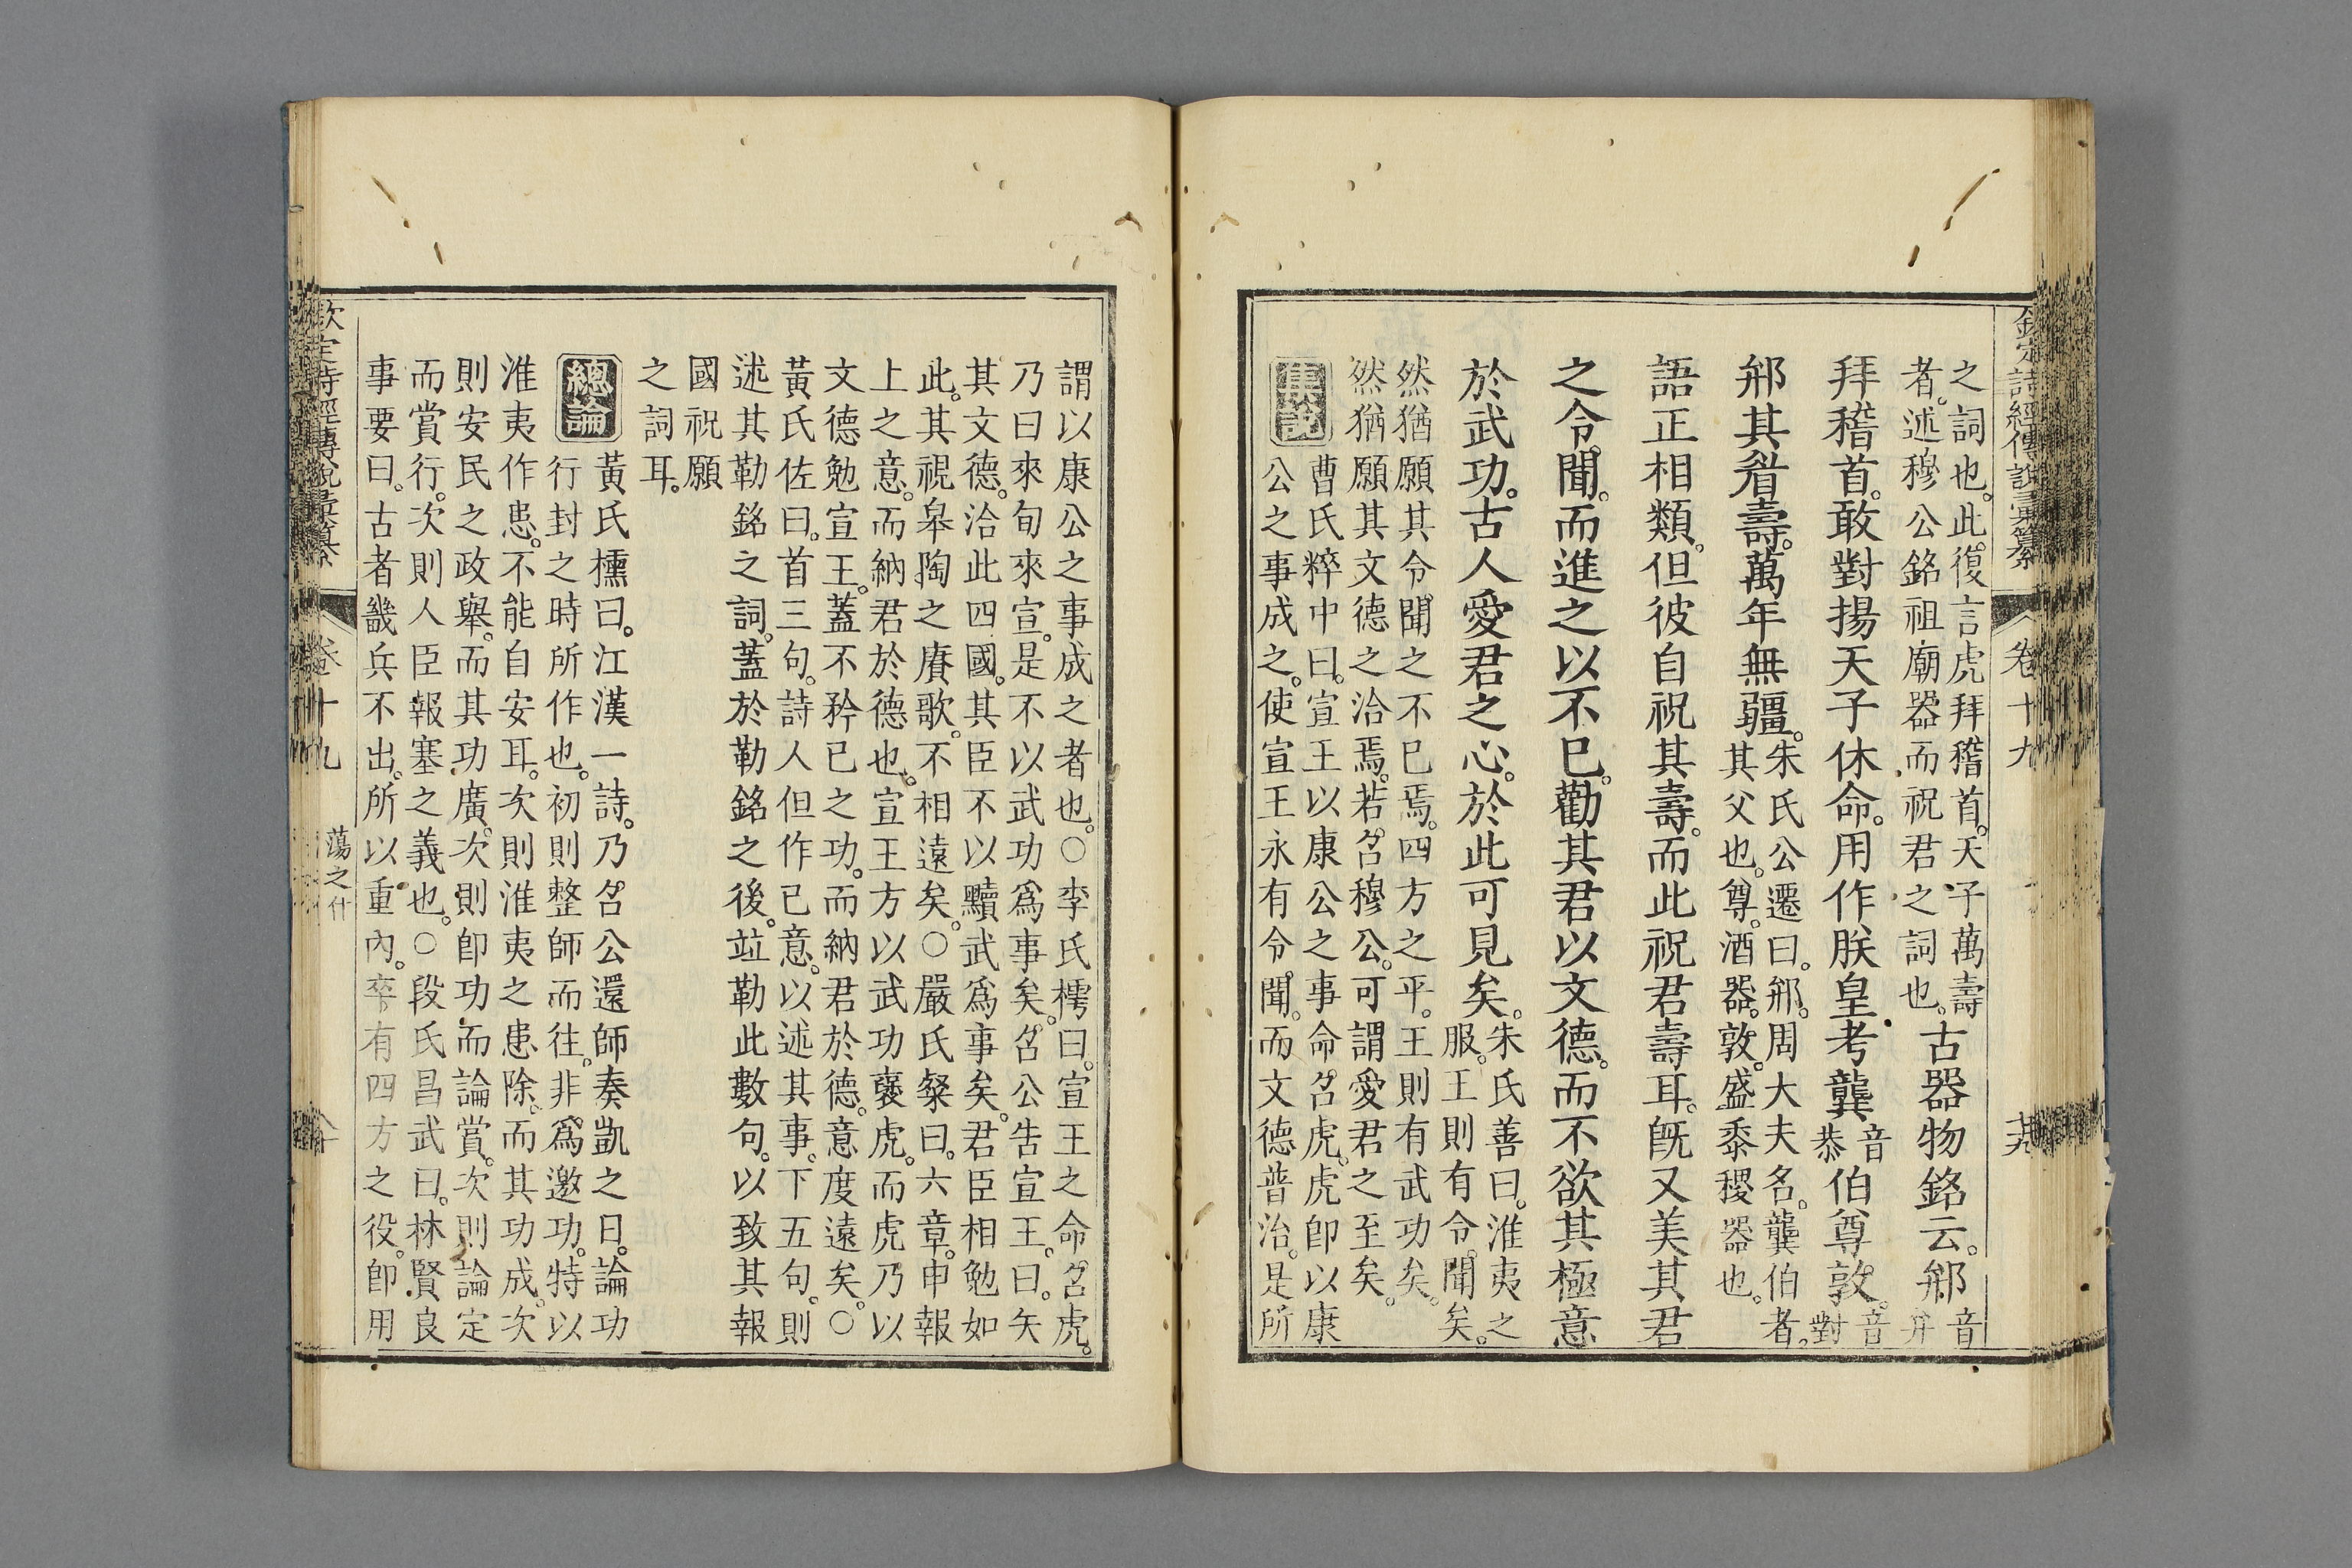 欽定詩經傳說彙纂 卷十九
之詞也。此復言虎拜稽首。天子萬壽
者。述穆公銘祖廟器而祝君之詞也。
古器物銘云。郱
音
弁
拜稽首。敢對揚天子休命。用作朕皇考龔
音
恭
伯尊敦。
音
對
郱其眉壽。萬年無疆。
朱氏公遷曰。郱。周大夫名。龔伯者。
其父也。尊。酒器。敦。盛黍稷器也。
語正相類。但彼自祝其壽。而此祝君壽耳。旣又美其君
之令聞。而進之以不已。勸其君以文德。而不欲其極意
於武功。古人愛君之心。於此可見矣。
朱氏善曰。淮夷之
服。王則有令。聞矣。
然猶願其令聞之不已焉。四方之平。王則有武功矣。
然猶願其文德之洽焉。若召穆公。可謂愛君之至矣。
集說
曹氏粹中曰。宣王以康公之事命召虎。虎卽以康
公之事成之。使宣王永有令聞。而文德普治。是所
謂以康公之事成之者也。○李氏樗曰。宣王之命召虎。
乃曰來旬來宣。是不以武功爲事矣。召公告宣王。曰。矢
其文德。洽此四國。其臣不以黷武爲事矣。君臣相勉如
此。其視皋陶之賡歌。不相遠矣。○嚴氏粲曰。六章。申報
上之意。而納君於德也。宣王方以武功襃虎。而虎乃以
文德勉宣王。蓋不矜已之功。而納君於德。意度遠矣。○
黃氏佐曰。首三句。詩人但作已意。以述其事。下五句。則
述其勒銘之詞。蓋於勒銘之後。竝勒此數句。以致其報
國祝願
之詞耳。
總論
黃氏櫄曰。江漢一詩。乃召公還師奏凱之日。論功
行封之時所作也。初則整師而往。非爲邀功。特以
淮夷作患。不能自安耳。次則淮夷之患除。而其功成。次
則安民之政舉。而其功廣。次則卽功而論賞。次則論定
而賞行。次則人臣報塞之義也。○段氏昌武曰。林賢良
事要曰。古者畿兵不出。所以重內。卒有四方之役。卽用
欽定詩經傳說彙纂 卷十九 蕩之什